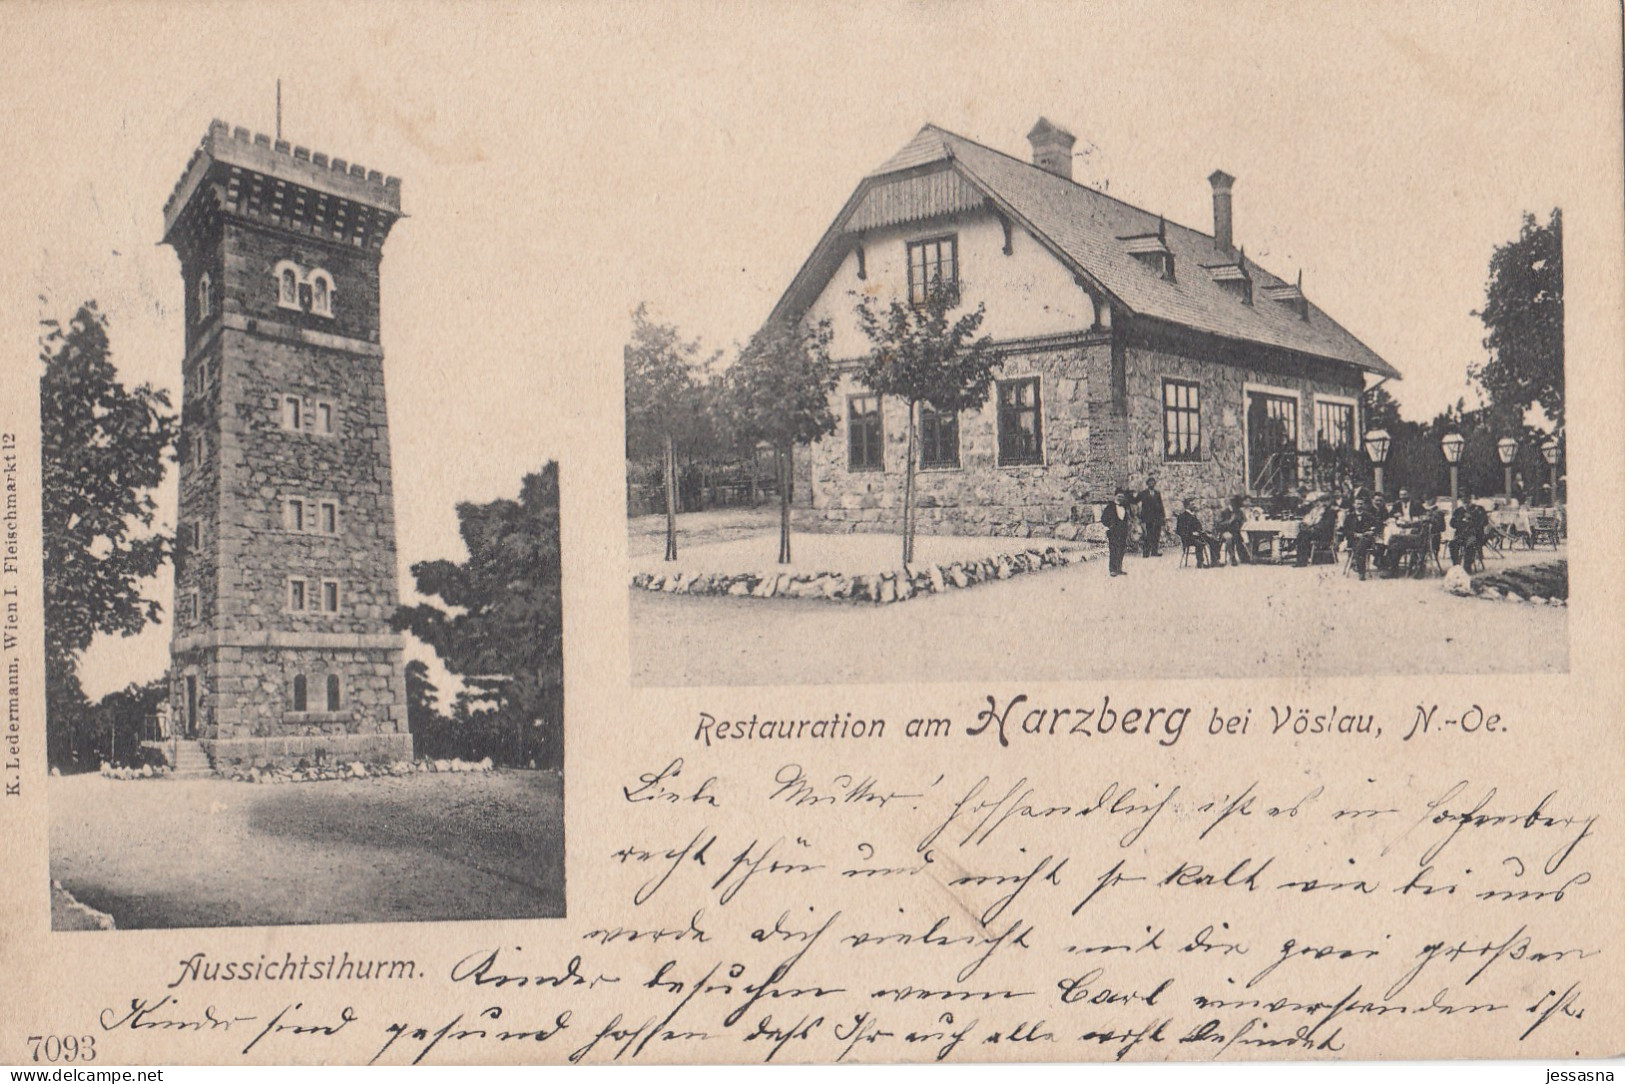 K. Ledermann, Wien I. Fleischmarkt 12
Restauration am Harzberg bei Vöslau, N.-Oe.
Liebe Mutter! hoffendlich ist es in
recht schön und nicht so kalt wie bei uns
werde dich vieleicht mit die zwei großen
Aussichtsthurm.
Kinder besuchen wenn Carl einverstanden ist.
Kinder sind gesund hoffen daß Ihr auch alle wohl befindet
7093
delcampe.net
jessasna